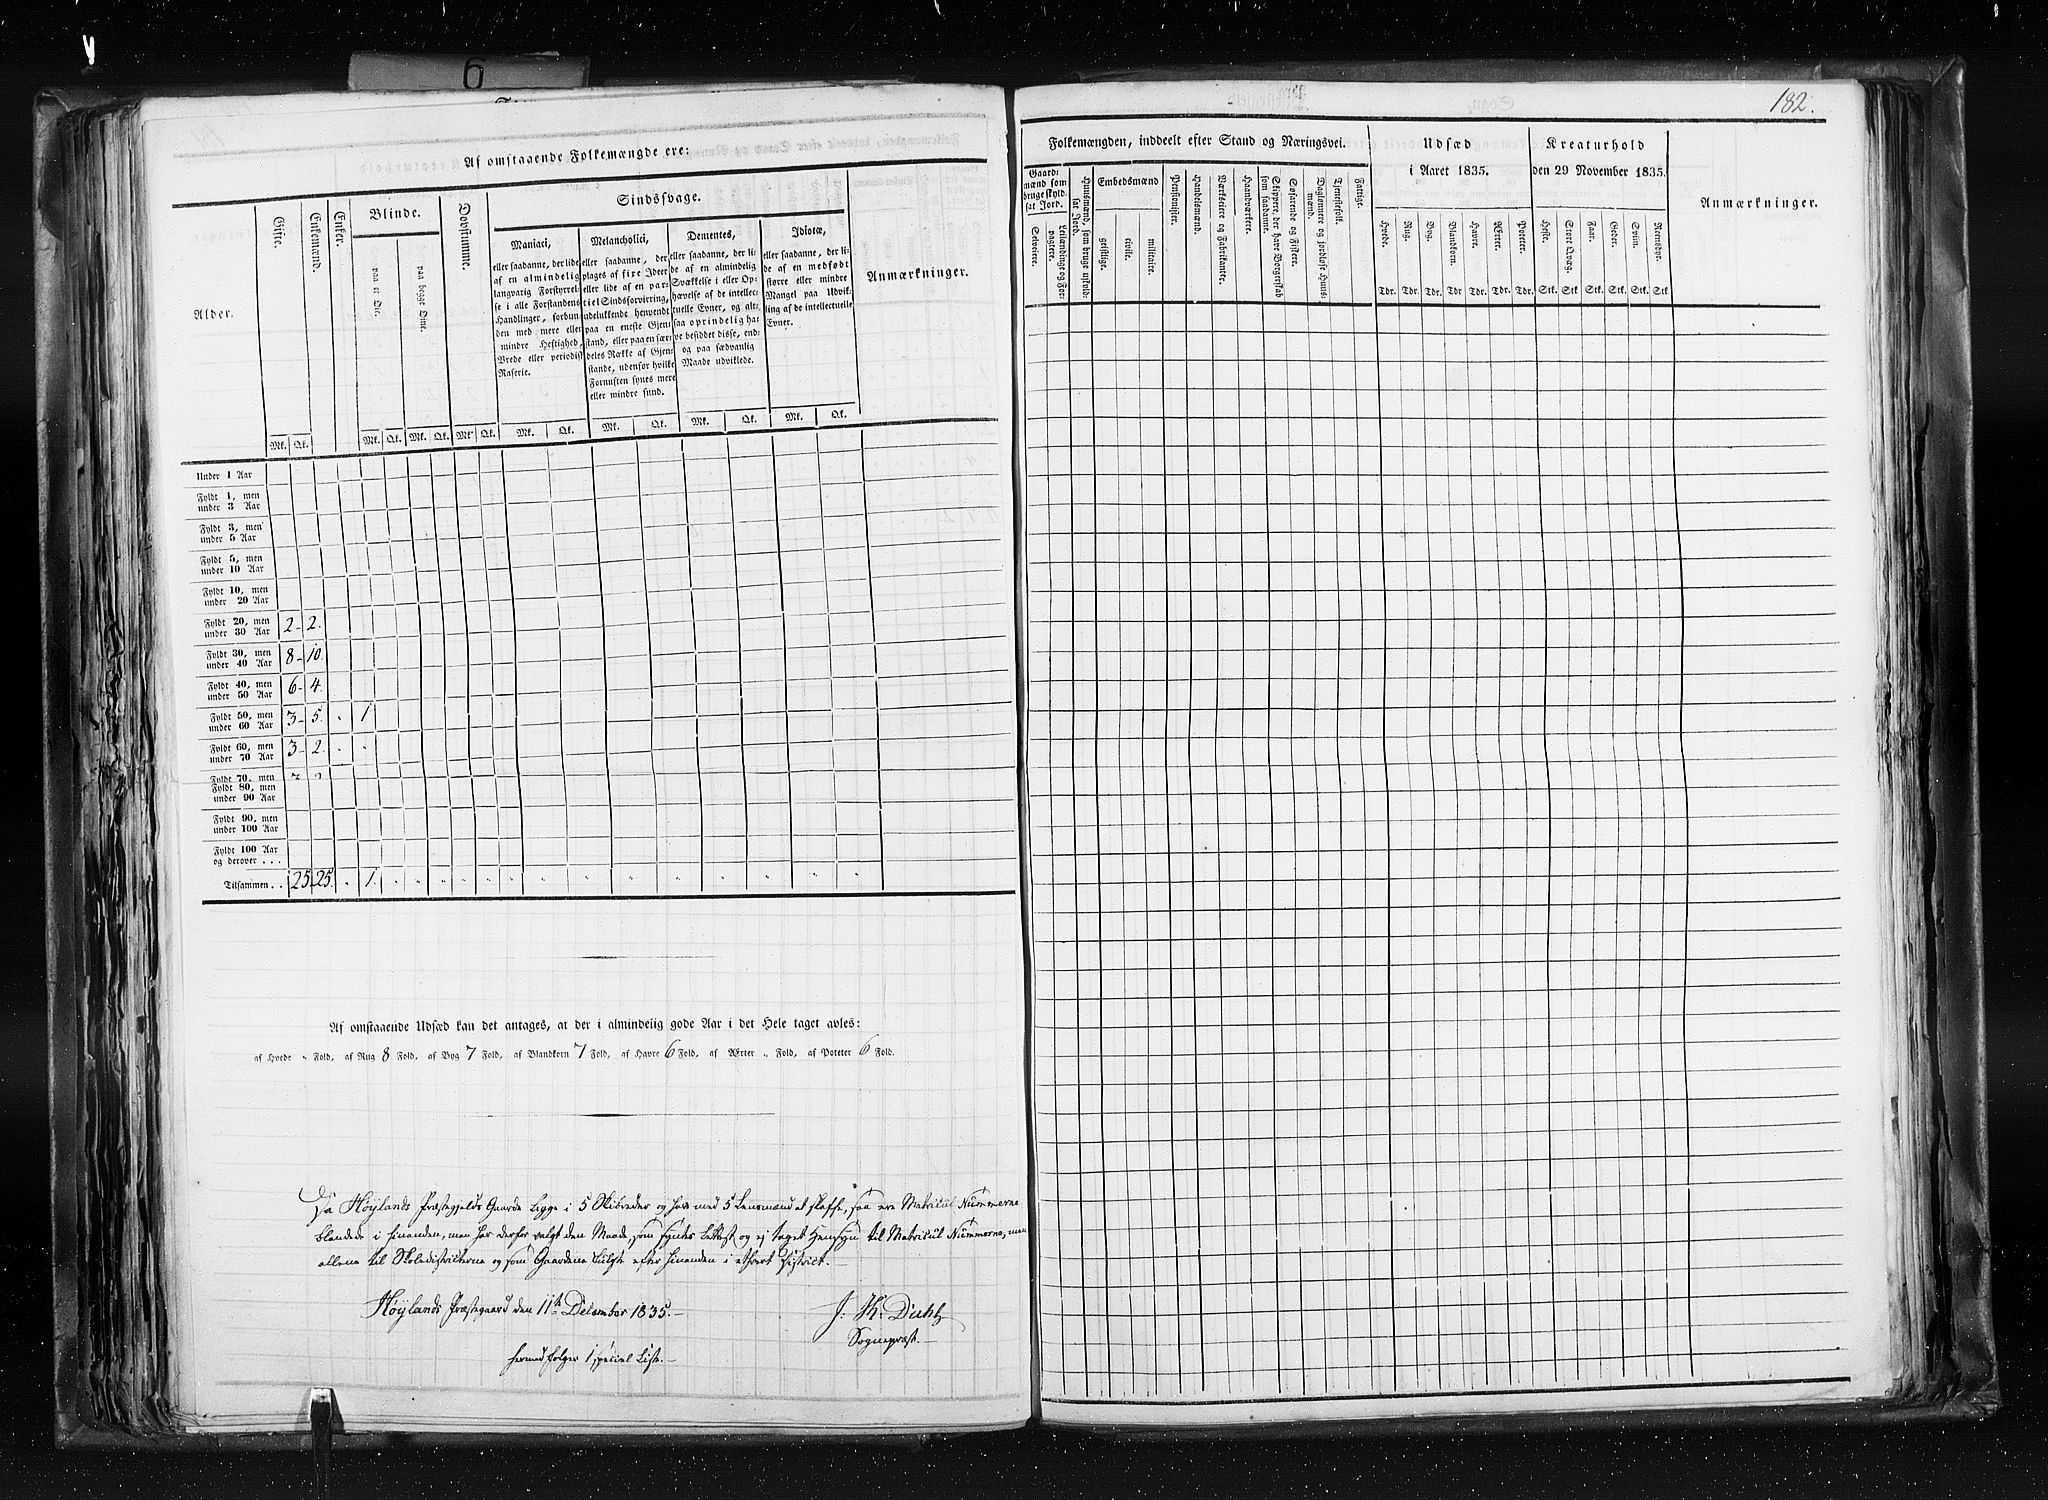 6
Af omstaaende Folkemængde ere:
Alder.
Gifte.
Enkemænd.
Enker.
Blinde.
paa et Øie.
paa begge Øine.
Døvstumme.
Sindssvage.
Maniaci,
eller saadanne, der lide
af en almindelig
langvarig Forstyrrel-
se i alle Forstandens
Handlinger, forbun-
den med mere eller
mindre Heftighed,
Vrede eller periodisk
Raserie.
Melancholici,
eller saadanne, der
plages af fixe Ideer
eller lide af en par-
tiel Sindsforvirring,
udelukkende henvendt
paa en eneste Gjen-
stand, eller paa en sær-
deles Række af Gjen-
stande, udenfor hvilke
Fornuften synes mere
eller mindre sund.
Dementes,
eller saadanne, der li-
de af en almindelig
Svækkelse i eller Op-
hævelse af de intellec-
tuelle Evner, og alt-
saa oprindelig ha-
ve besiddet disse, end-
og paa sædvanlig
Maade udviklede.
Idiotæ,
eller saadanne, der li-
de af en medfødt
større eller mindre
Mangel paa Udvik-
ling af de intellectuelle
Evner.
Anmærkninger.
Mk. Qk. Mk. Qk. Mk. Qk. Mk. Qk. Mk. Qk. Mk. Qk. Mk. Qk. Mk. Qk.
Under 1 Aar
Fyldt 1, men
under 3 Aar
Fyldt 3, men
under 5 Aar
Fyldt 5, men
under 10 Aar
Fyldt 10, men
under 20 Aar
Fyldt 20, men
under 30 Aar 2 - 2.
Fyldt 30, men
under 40 Aar 8 - 10.
Fyldt 40, men
under 50 Aar 6 - 4.
Fyldt 50, men
under 60 Aar 3 - 5. " 1
Fyldt 60, men
under 70 Aar 3 - 2. " "
Fyldt 70, men
Fyldt 80, men
under 90 Aar
Fyldt 90, men
under 100 Aar
Fyldt 100 Aar
og derover . . .
Tilsammen . . 25 25. " 1. " " " " " " " " " " " " " "
Af omstaaende Udsæd kan det antages, at der i almindelig gode Aar i det Hele taget avles:
af Hvede " Fold, af Rug 8 Fold, af Byg 7 Fold, af Blandkorn 7 Fold, af Havre 6 Fold, af Ærter " Fold, af Poteter 6 Fold.
Da Høylands Præstegjelds Gaarde ligge i 5 Skibreder og have med 5 Lensmænd at skaffe, saa ere Matricul Nummerne
blandede i hinanden, man har derfor valgt den Maade, som syntes lettest og ej taget Hensyn til Matricul Nummerne, men
allene til Skoledistricterne og som Gaardene fulgte efter hinanden i ethvert District.-
Høylands Præstegaard den 11te December 1835.-
J. Th. Dühs
Sognepræst.-
hermed følger 1 special Liste.-
182.
Folkemængden, inddeelt efter Stand og Næringsvei.
Gaard-
mænd som
bruge skyld-
sat Jord.
Selveiere.
Leilændinge og For-
pagtere.
Huusmænd, som bruge uskyld-
sat Jord.
Embedsmænd
geistlige.
civile.
militaire.
Pensionister.
Handelsmænd.
Værkseiere
og Fabrikanter.
Haandværkere.
Skippere, der have Borgerskab
som saadanne.
Søfarende og Fi-
skere.
Daglønnere og jordløse Huus-
mænd.
Tjenestefolk.
Fattige.
Udsæd
i Aaret 1835.
Hvede.
Rug.
Byg.
Blandkorn.
Havre.
Ærter.
Poteter.
Tdr. Tdr. Tdr. Tdr Tdr. Tdr. Tdr.
Kreaturhold
den 29 November 1835.
Heste.
Stort Qvæg.
Faar.
Geder.
Sviin.
Reensdyr.
Stk. Stk Stk. Stk. Stk. Stk
Anmærkninger.